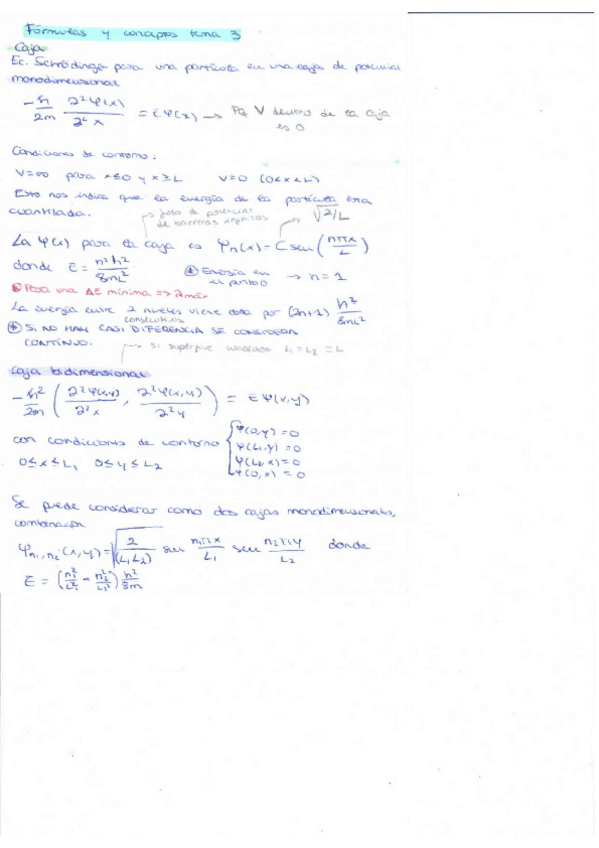 Fórmulas y conceptos tema 3
Caja
Ec. Schrödinger para una partícula en una caja de potencial
monodimensional
-ħ/2m ∂²φ(x)/∂²x = Eφ(x) → Pq V dentro de la caja
es 0
Condiciones de contorno:
V=∞ para x≤0 y x≥L V=0 (0<x<L)
Esto nos indica que la energía de la partícula era
cuantizada.
→ foso de potencial
de barreras infinitas
√2/L
La φ(x) para la caja es φn(x) = C sen (nπx/L)
donde E = n²h²/8mL²
Energía en
el punto 0 → n=1
Para una ΔE mínima => λmáx
La energía entre 2 niveles viene dada por (2n+1) h²/8mL²
consecutivos
* SI NO HAY CASI DIFERENCIA SE CONSIDERA
CONTÍNUO.
→ si superficie cuadrada L₁=L₂=L
Caja bidimensional
-ħ²/2m (∂²φ(x,y)/∂²x, ∂²φ(x,y)/∂²y) = Eφ(x,y)
con condiciones de contorno
φ(0,y)=0
φ(L₁,y)=0
φ(L₂,x)=0
φ(0,x)=0
0≤x≤L₁ 0≤y≤L₂
Se puede considerar como dos cajas monodimensionales,
combinación
φn₁,n₂(x,y)=√2/(L₁L₂) sen n₁πx/L₁ sen n₂πy/L₂ donde
E = (n₁²/L₁² - n₂²/L₂²) h²/8m